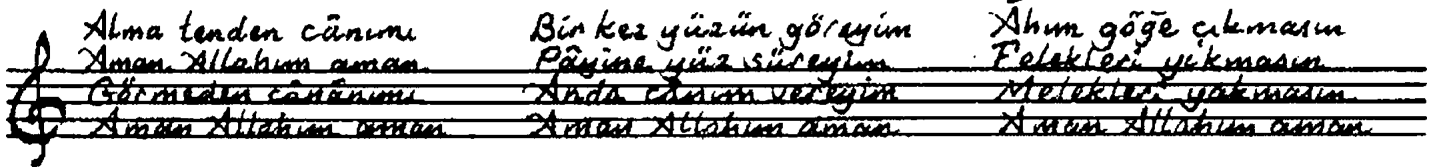 Alma tenden cânımı
Aman Allahım aman
Görmeden cânânımı
Aman Allahım aman
Bir kez yüzün göreyim
Pâyine yüz süreyim
Anda cânım vereyim
Aman Allahım aman
Âhım göğe çıkmasın
Felekleri yıkmasın
Melekleri yakmasın
Aman Allahım aman